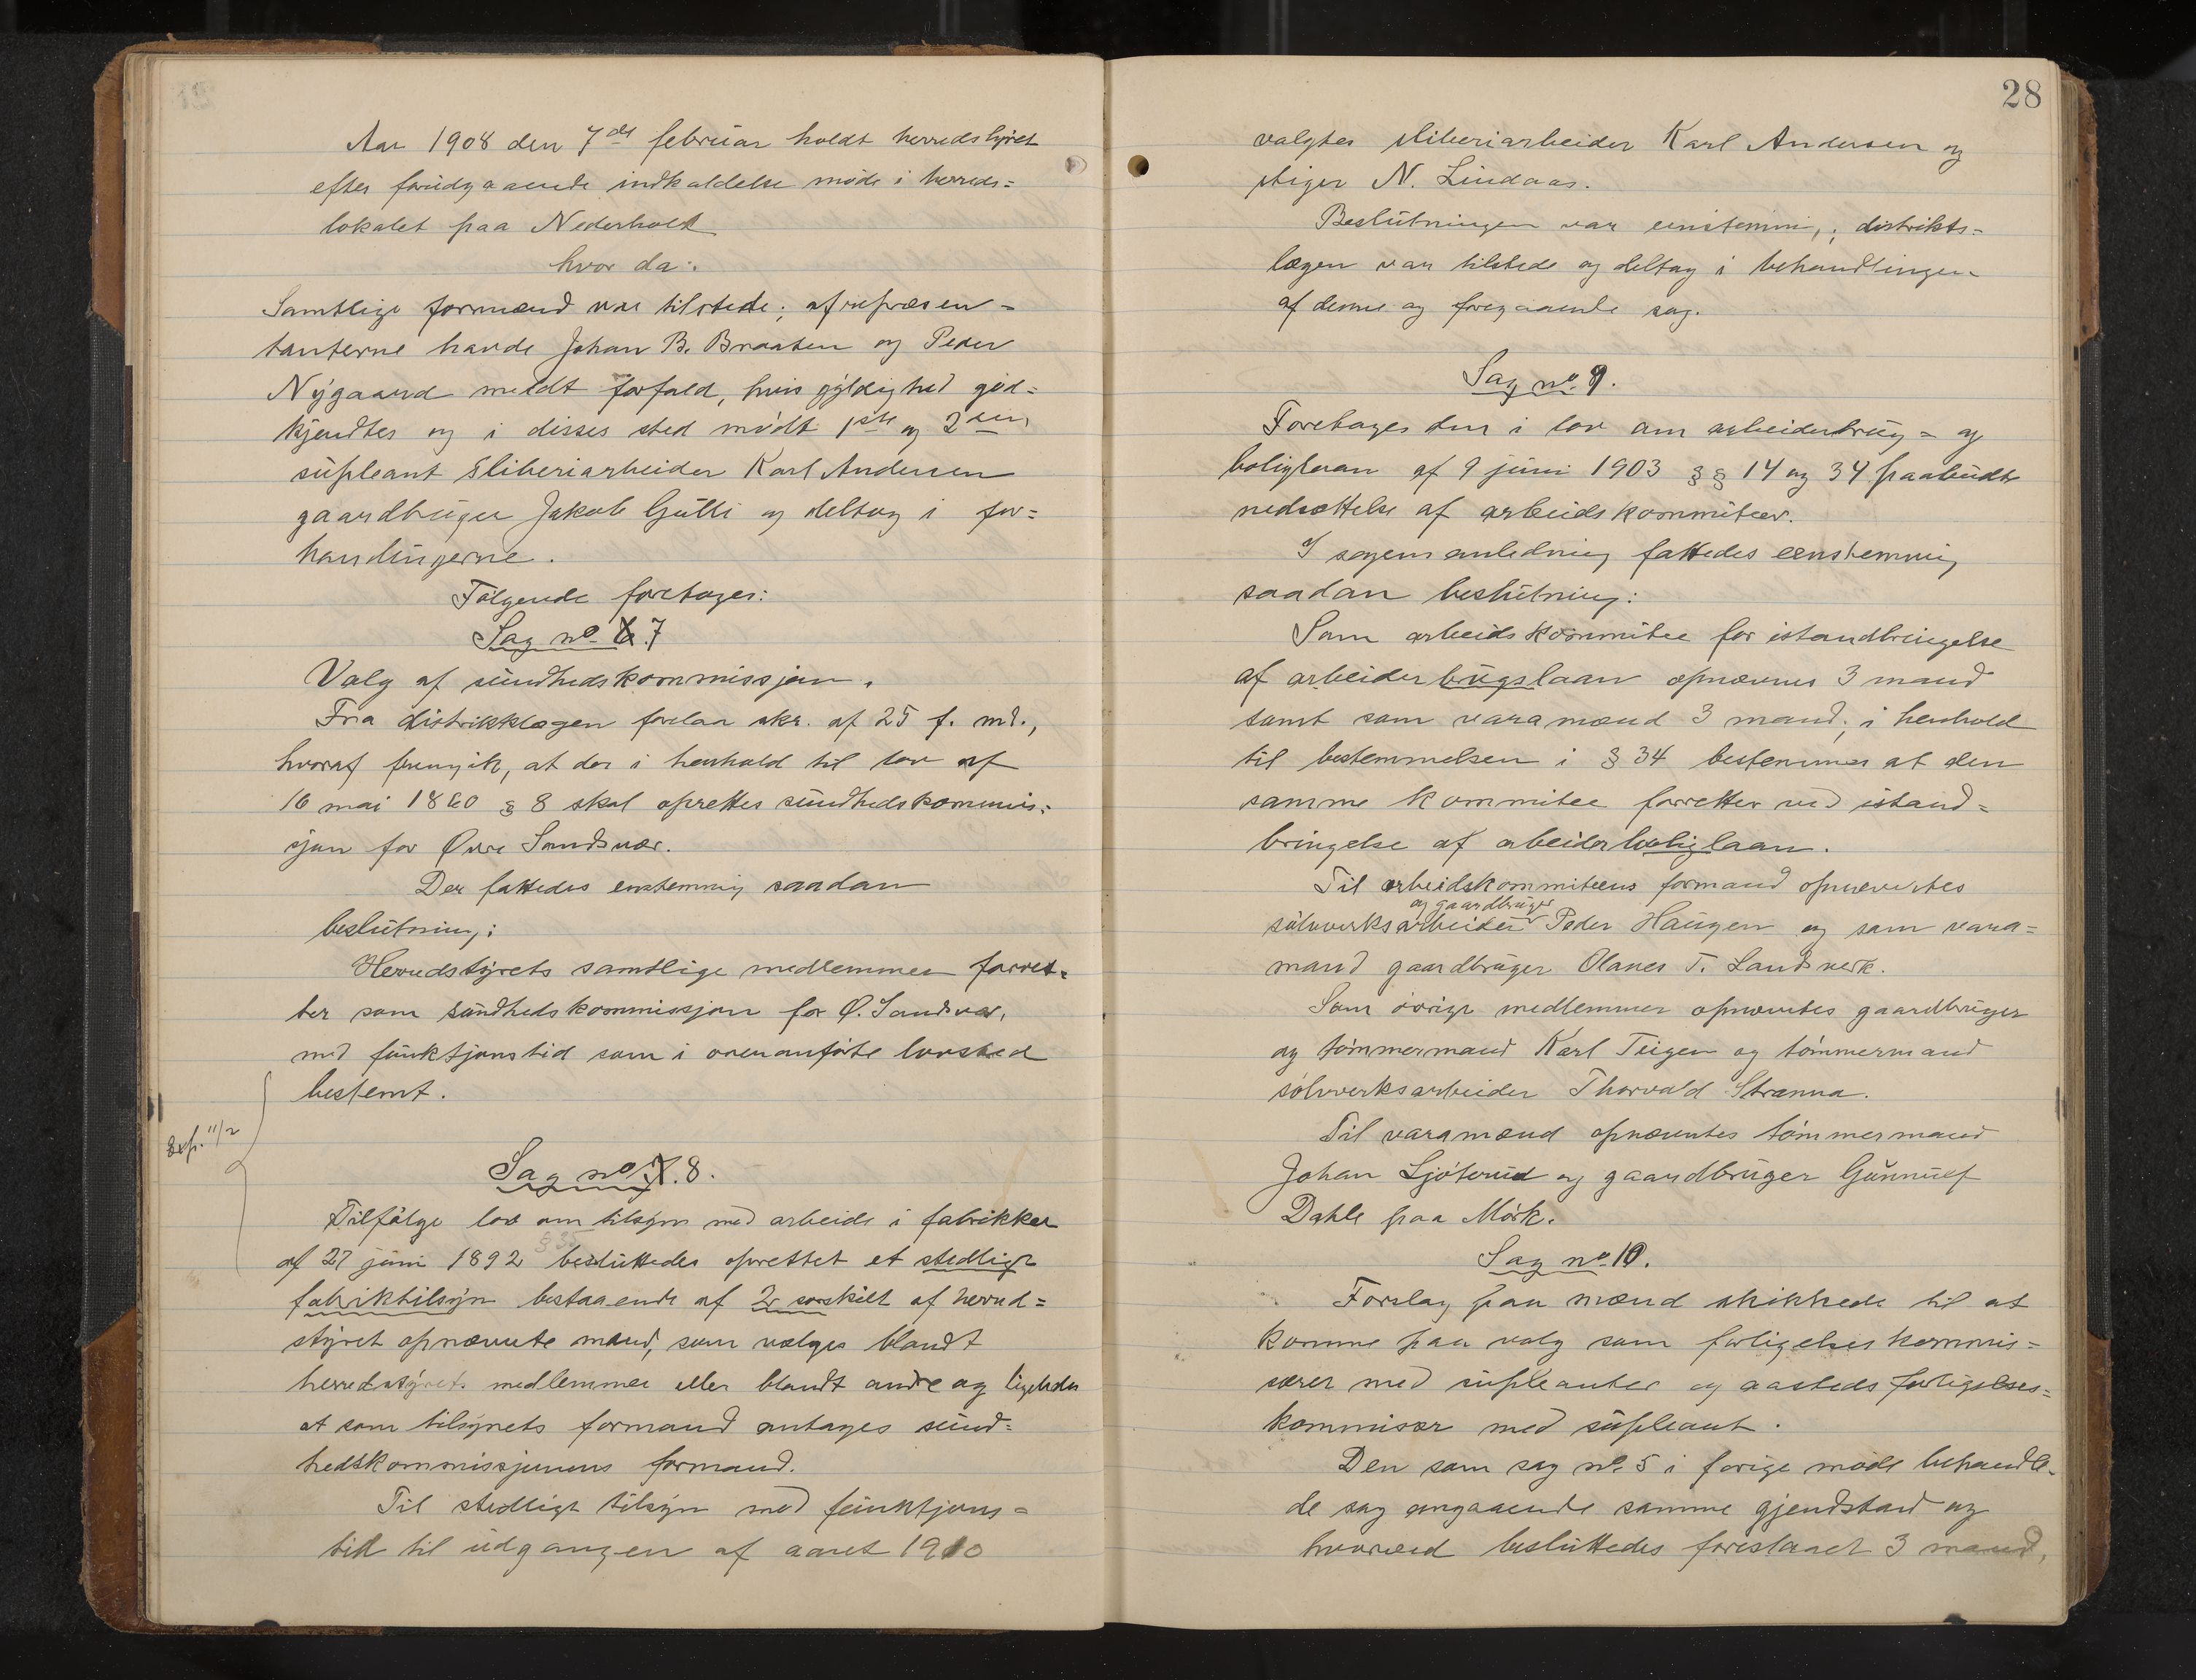 Aar 1908 den 7de februar holdt herredstyret
efter forudgaaende indkaldelse møde i herreds=
lokalet paa Nederholt
hvor da:
Samtlige formænd var tilstede; af repræsen=
tanterne havde Johan B. Braaten og Peder
Nygaard meldt forfald, hvis gyldighed god=
kjendtes og i disses sted mødt 1ste og 2den
supleant Sliberiarbeider Karl Andersen
gaardbruger Jakob Gulli og deltog i for=
handlingerne.
Følgende foretoges:
Sag no. 7
Valg af sundhedskommissjon.
Fra distriktslægen forelaa skr. af 25 f. md.,
hvoraf fremgik, at der i henhold til lov af
16 mai 1860 § 8 skal oprettes sundhedskommis=
sjon for Øvre Sandsvær.
Der fattedes enstemmig saadan
beslutning:
Herredstyrets samtlige medlemmer forret=
ter som sundhedskommissjon for Ø. Sandsvær,
med funktjonstid som i ovenanførte lovsted
bestemt.
Exp. 11/2
Sag no 7. 8.
Tilfølge lov om tilsyn med arbeide i fabrikker
§ 35
af 27 juni 1892 besluttedes oprettet et stedligt
fabriktilsyn bestaaende af 2 særskilt af herred=
styret opnævnte mænd, som vælges blandt
herredstyrets medlemmer eller blandt andre og ligeledes
at som tilsynets formand antages sund=
hedskommissjonens formand.
Til stedligt tilsyn med funktjons=
tid til udgangen af aaret 1910
28
valgtes sliberiarbeider Karl Andersen og
stiger N. Lindaas.
Beslutningen var enstemmig; distrikts=
lægen var tilstede og deltog i behandlingen
af denne og foregaaende sag.
Sag no. 9.
Foretoges den i lov om arbeiderbrug= og
boliglaan af 9 juni 1903 §§ 14 og 34 paabudte
nedsættelse af arbeidskommiteer.
I sagens anledning fattedes eenstemmig
saadan beslutning:
Som arbeidskommitee for istandbringelse
af arbeiderbrugslaan opnævnes 3 mænd
samt som varamænd 3 mænd; i henhold
til bestemmelsen i § 34 bestemmes at den
samme kommitee forretter ved istand=
bringelse af arbeiderboliglaan.
Til arbeidskommiteens formand opnævntes
og gaardbruger
sølvverksarbeider Peder Haugen og som vara=
mand gaardbruger Olaves T. Landsverk.
Som øvrige medlemmer opnævntes gaardbruger
og tømmermand Karl Teigen og tømmermand
sølvverksarbeider Thorvald Stranna.
Til varamænd opnævntes tømmermand
Johan Ljøterud og gaardbruger Gunnulf
Dahle paa Mørk.
Sag no. 10.
Forslag paa mænd skikkede til at
komme paa valg som forligelseskommis=
særer med supleanter og aasteds forligelses=
kommissær med supleant.
Den som sag no. 5 i forige møde behandle=
de sag angaaende samme gjendstand og
hvorved besluttedes foreslaaet 3 mænd,